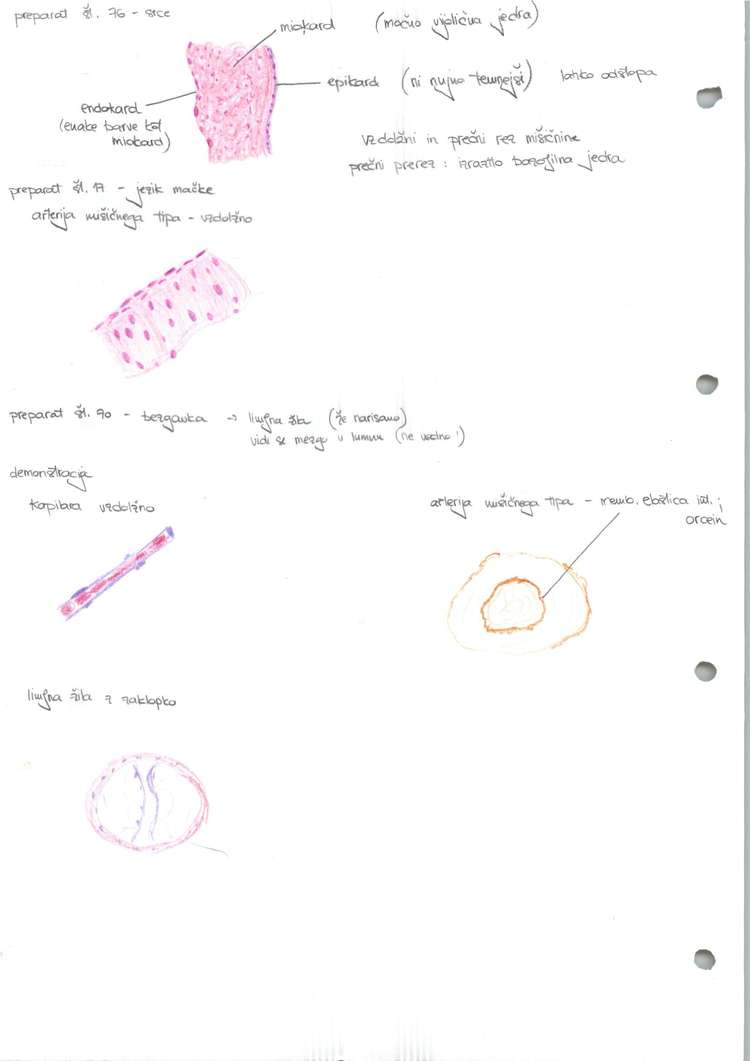 preparat št. 76 - srce
miokard (močno vijolična jedra)
epikard (ni nujno temnejši) lahko odstopa
endokard
(enake barve kot
miokard)
vzdolžni in prečni rez mišičnine
prečni prerez : izrazito bazofilna jedra
preparat št. 17 - jezik mačke
arterija mišičnega tipa - vzdolžno
preparat št. 90 - bezgavka → limfna žila (že narisano)
vidi se mezgo v lumnu (ne vedno!)
demonstracija
kapilara vzdolžno
arterija mišičnega tipa - memb. elastica int. ;
orcein
limfna žila z zaklopko